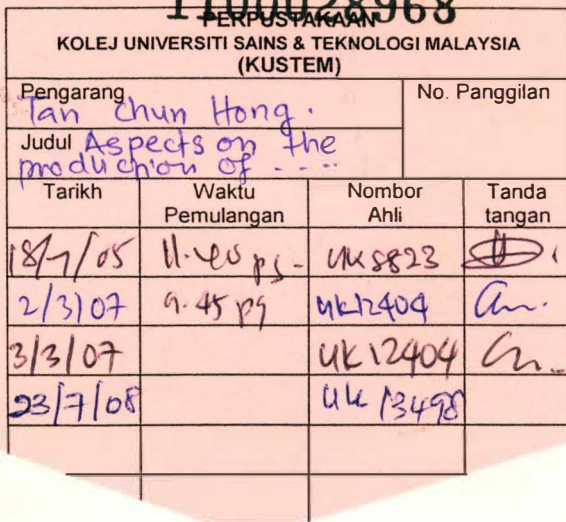 1100028968
PERPUSTAKAAN
KOLEJ UNIVERSITI SAINS & TEKNOLOGI MALAYSIA
(KUSTEM)
Pengarang
No. Panggilan
Tan Chun Hong.
Judul Aspects on the
production of ----
Tarikh Waktu Pemulangan Nombor Ahli Tanda tangan
18/7/05 11.40 pg- UK8823
2/3/07 9.45 pg UK12404
3/3/07 UK12404
23/7/08 UK13498